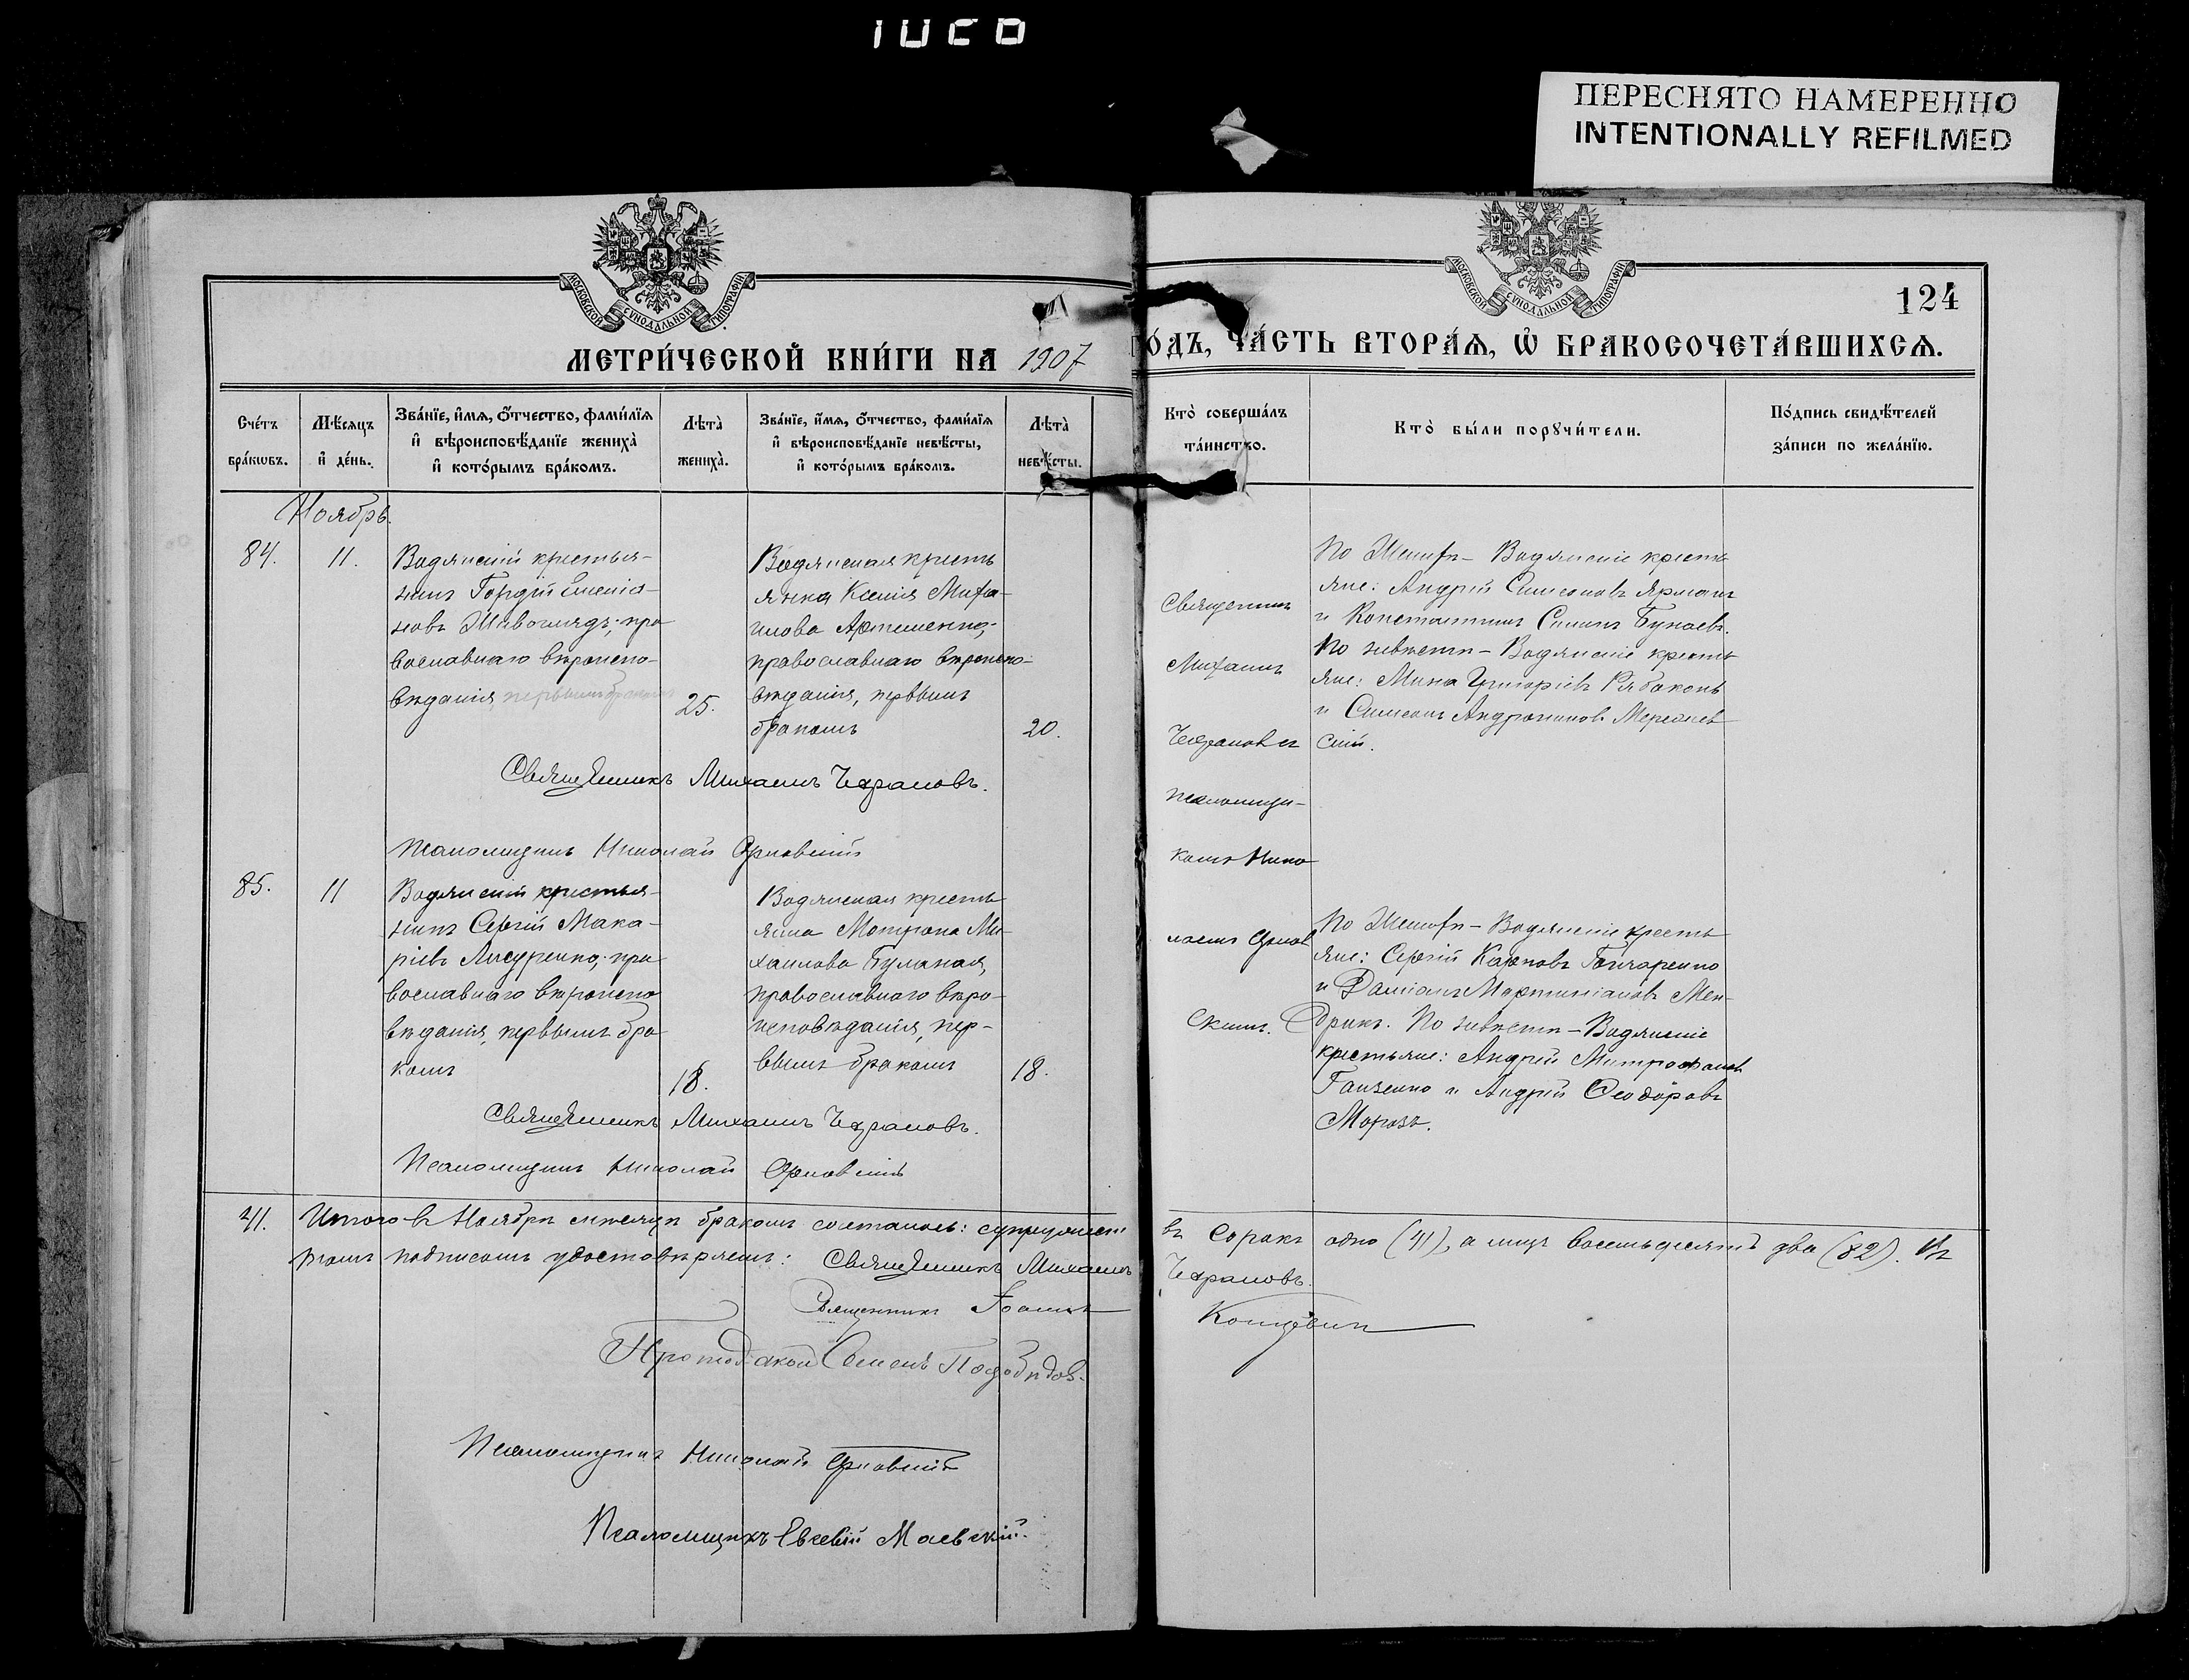 ПЕРЕСНЯТО НАМЕРЕННО
INTENTIONALLY REFILMED
МОСКОВСКОЙ СУНОДАЛЬНОЙ ТИПОГРАФІИ
МОСКОВСКОЙ СУНОДАЛЬНОЙ ТИПОГРАФІИ
124
МЕТРИ́ЧЕСКОЙ КНИ́ГИ НА 1907
ГОДЪ, ЧА́СТЬ ВТОРА́Ѧ, Ѡ БРАКОСОЧЕТА́ВШИХСѦ.
Сче́тъ бра́кѡвъ.
Мѣ́сяцъ и де́нь.
Зва́нїе, и́мѧ, ѻ́тчество, фами́лїѧ и вѣроисповѣ́данїе жениха̀ и кото́рымъ бра́комъ.
Лѣта̀ жениха̀.
Зва́нїе, и́мѧ, ѻ́тчество, фами́лїѧ и вѣроисповѣ́данїе невѣ́сты, и кото́рымъ бра́комъ.
Лѣта̀ невѣ́сты.
Кто̀ соверша́лъ та́инство.
Кто̀ бы́ли порꙋчи́тели.
По́дпись свидѣ́телей за́писи по жела́нїю.
Ноябрь.
84.
11.
Водянскій крестья-
нинъ Гордій Емелiа-
новъ Живогляд; пра
вославнаго вѣроиспо-
вѣданія, первымъ бракомъ
25.
Водянская кресть
янка Ксенія Миха-
илова Артеменко;
православнаго вѣроиспо-
вѣданія, первымъ
бракомъ
20.
Священникъ
Михаилъ
псаломщи-
комъ Нико
лаемъ Орлов
скимъ.
По Женихѣ - Водянскіе кресть
яне: Андрей Симеоновъ Ярмакъ
и Константинъ Бунаевъ.
По невѣстѣ - Водянскіе кресть
яне: Мина Григоріевъ Рябоконь
и Симеонъ Андрониковъ
скій.
Священникъ Михаилъ
Псаломщикъ Николай Орловскій
85.
11
Водянскій крестья-
нинъ Сергій Мака-
ріевъ пра
вославнаго вѣроиспо
вѣданія, первымъ бра
комъ
18.
Водянская кресть
янка Матрона Ми-
хаилова Буланая,
православнаго вѣро-
исповѣданія, пер-
вымъ бракомъ
18.
По Женихѣ - Водянскіе кресть
яне: Сергій Карповъ Гончаренко
и Даміанъ Мартиніановъ Мен-
дрикъ. По невѣстѣ - Водянскіе
крестьяне: Андрей Митрофановъ
Ганженко и Андрей Ѳеодоровъ
Морозъ.
Священникъ Михаилъ
Псаломщикъ Николай Орловскій
41.
Итого въ Ноябрѣ мѣсяцѣ бракомъ состоялось: супружест
въ сорокъ одно (41), а лицъ восемьдесятъ два (82). Въ
томъ подписомъ удостовѣряемъ: Священникъ Михаилъ
Священникъ Іоаннъ
Протодіаконъ Семенъ
Псаломщикъ Николай Орловскій
Псаломщикъ Евсевій Маевскій.